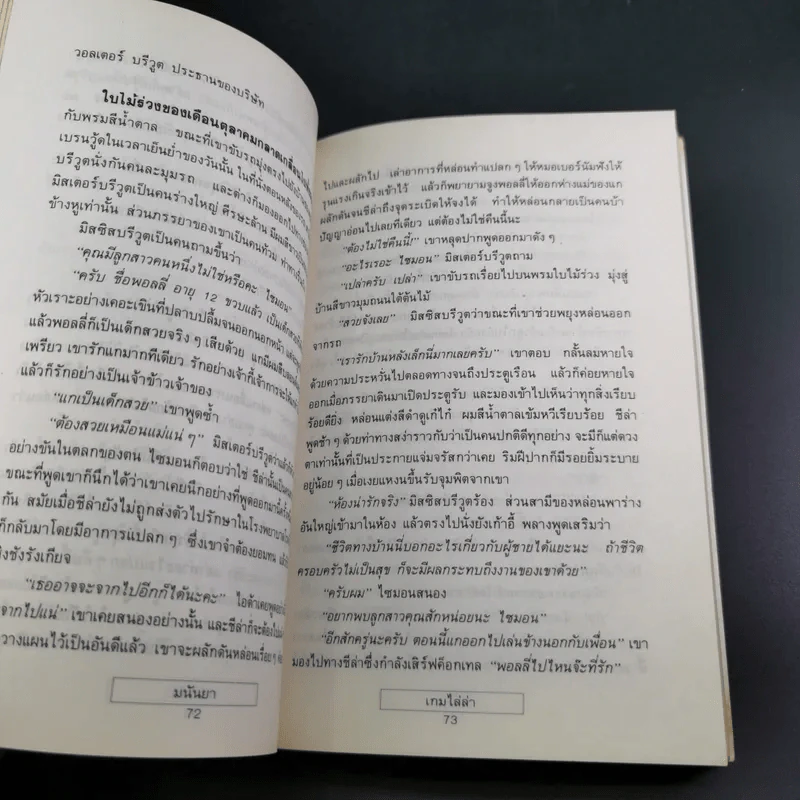 วอลเตอร์ บรีวูต ประธานของบริษัท
ใบไม้ร่วงของเดือนตุลาคมกลาดเกลื่อน
กับพรมสีน้ำตาล ขณะที่เขาขับรถมุ่งตรงไปยัง
เบรนวู้ดในเวลาเย็นย่ำของวันนั้น ในที่นั่งตอนหลังของ
บรีวูตนั่งกันคนละมุมรถ และต่างก็มองออกไป
มิสเตอร์บรีวูตเป็นคนร่างใหญ่ ศีรษะล้าน มีผมสีขาว
ข้างหูเท่านั้น ส่วนภรรยาของเขาเป็นคนท้วม ท่าทาง
มิสซิสบรีวูตเป็นคนถามขึ้นว่า
“คุณมีลูกสาวคนหนึ่งไม่ใช่หรือคะ ไซมอน”
“ครับ ชื่อพอลลี่ อายุ 12 ขวบแล้ว เป็นเด็กสวย
หัวเราะอย่างเคอะเขินที่ปลาบปลื้มจนออกนอกหน้า
แล้วพอลลี่ก็เป็นเด็กสวยจริง ๆ เสียด้วย แกมีผม
เพรียว เขารักแกมากทีเดียว รักอย่างเจ้ากี้เจ้าการ
แล้วก็รักอย่างเป็นเจ้าข้าวเจ้าของ
“แกเป็นเด็กสวย” เขาพูดซ้ำ
“ต้องสวยเหมือนแม่แน่ ๆ” มิสเตอร์บรีวูตว่าแล้วก็
อย่างขันในตลกของตน ไซมอนก็ตอบว่าใช่ ชีล่านั้นเป็น
ขณะที่พูดเขาก็นึกได้ว่าเขาเคยนึกอย่างที่พูดออกมานี้
กัน สมัยเมื่อชีล่ายังไม่ถูกส่งตัวไปรักษาในโรงพยาบาล
ก็กลับมาโดยมีอาการแปลก ๆ ซึ่งเขาจำต้องยอมทน
ชิงชังรังเกียจ
“เธออาจจะจากไปอีกก็ได้นะคะ” ไอด้าเคยพูด
จากไปแน่” เขาเคยสนองอย่างนั้น และชีล่าก็จะต้อง
วางแผนไว้เป็นอันดีแล้ว เขาจะผลักดันหล่อนเรื่อย ๆ
มนันยา
72
ไปและผลักไป เล่าอาการที่หล่อนทำแปลก ๆ ให้หมอเบอร์นัมฟังให้
รุนแรงเกินจริงเข้าไว้ แล้วก็พยายามจูงพอลลี่ให้ออกห่างแม่ของแก
ผลักดันจนชีล่าถึงจุดระเบิดให้จงได้ ทำให้หล่อนกลายเป็นคนบ้า
ปัญญาอ่อนไปเลยทีเดียว แต่ต้องไม่ใช่คืนนี้นะ
“ต้องไม่ใช่คืนนี้!” เขาหลุดปากพูดออกมาดัง ๆ
“อะไรเรอะ ไซมอน” มิสเตอร์บรีวูตถาม
“เปล่าครับ เปล่า” เขาขับรถเรื่อยไปบนพรมใบไม้ร่วง มุ่งสู่
บ้านสีขาวมุมถนนใต้ต้นไม้
“สวยจังเลย” มิสซิสบรีวูตว่าขณะที่เขาช่วยพยุงหล่อนออก
จากรถ
“เรารักบ้านหลังเล็กนี่มากเลยครับ” เขาตอบ กลั้นลมหายใจ
ด้วยความประหวั่นไปตลอดทางจนถึงประตูเรือน แล้วก็ค่อยหายใจ
ออกเมื่อภรรยาเดินมาเปิดประตูรับ และมองเข้าไปเห็นว่าทุกสิ่งเรียบ
ร้อยดียิ่ง หล่อนแต่งสีดำดูเก๋ไก๋ ผมสีน้ำตาลเข้มหวีเรียบร้อย ชีล่า
พูดช้า ๆ ด้วยท่าทางสง่าราวกับว่าเป็นคนปกติดีทุกอย่าง จะมีก็แต่ดวง
ตาเท่านั้นที่เป็นประกายแจ่มจรัสกว่าเคย ริมฝีปากก็มีรอยยิ้มระบาย
อยู่น้อย ๆ เมื่อเงยแหงนขึ้นรับจุมพิตจากเขา
“ห้องน่ารักจริง” มิสซิสบรีวูตร้อง ส่วนสามีของหล่อนพาร่าง
อันใหญ่เข้ามาในห้อง แล้วตรงไปนั่งยังเก้าอี้ พลางพูดเสริมว่า
“ชีวิตทางบ้านนี่บอกอะไรเกี่ยวกับผู้ชายได้แยะนะ ถ้าชีวิต
ครอบครัวไม่เป็นสุข ก็จะมีผลกระทบถึงงานของเขาด้วย”
“ครับผม” ไซมอนสนอง
“อยากพบลูกสาวคุณสักหน่อยนะ ไซมอน”
“อีกสักครู่นะครับ ตอนนี้แกออกไปเล่นข้างนอกกับเพื่อน” เขา
มองไปทางชีล่าซึ่งกำลังเสิร์ฟค็อกเทล “พอลลี่ไปไหนจ๊ะที่รัก”
เกมไล่ล่า
73